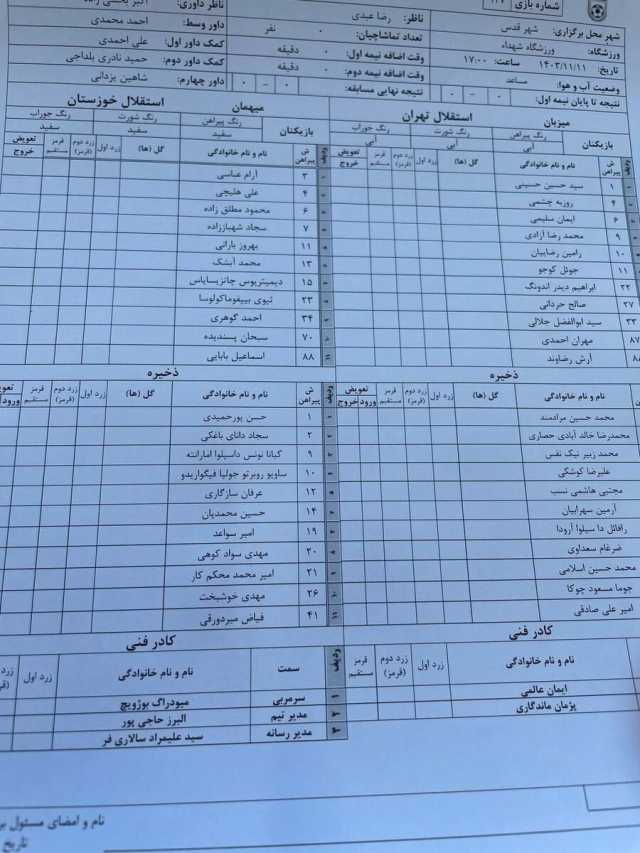 شماره بازی
شهر محل برگزاری: شهر قدس
ورزشگاه: ورزشگاه شهداء
تاریخ: ۱۴۰۳/۱۱/۱۱ ساعت: ۱۷:۰۰
وضعیت آب و هوا: مساعد
نتیجه تا پایان نیمه اول: ۰ - ۰
ناظر: رضا عبدی
تعداد تماشاچیان: ۰ نفر
وقت اضافه نیمه اول: ۰ دقیقه
وقت اضافه نیمه دوم: ۰ دقیقه
نتیجه نهایی مسابقه: ۰ - ۰
ناظر داوری:
داور وسط: احمد محمدی
کمک داور اول: علی احمدی
کمک داور دوم: حمید نادری بلداجی
داور چهارم: شاهین یزدانی
میزبان استقلال تهران
بازیکنان رنگ پیراهن رنگ شورت رنگ جوراب
آبی آبی آبی
ش پیراهن نام و نام خانوادگی گل (ها) زرد اول زرد دوم (قرمز) قرمز مستقیم تعویض خروج
۱ سید حسین حسینی
۴ روزبه چشمی
۶ ایمان سلیمی
۹ محمد رضا آزادی
۱۰ رامین رضاییان
۱۱ جوئل کوجو
۲۲ ابراهیم دیدر اندونگ
۲۷ صالح حردانی
۳۳ سید ابوالفضل جلالی
۸۷ مهران احمدی
آرش رضاوند
ذخیره
نام و نام خانوادگی گل (ها) زرد اول زرد دوم (قرمز) قرمز مستقیم تعویض ورود خروج
محمد حسین مرادمند
محمدرضا خالد آبادی حصاری
محمد زبیر نیک نفس
علیرضا کوشکی
مجتبی هاشمی نسب
آرمین سهرابیان
رافائل دا سیلوا آرودا
ضرغام سعداوی
محمد حسین اسلامی
جوما مسعود چوکا
امیر علی صادقی
کادر فنی
نام و نام خانوادگی زرد اول زرد دوم (قرمز) قرمز مستقیم
ایمان عالمی
پژمان ماندگاری
میهمان استقلال خوزستان
بازیکنان رنگ پیراهن رنگ شورت رنگ جوراب
سفید سفید سفید
ردیف ش پیراهن نام و نام خانوادگی گل (ها) زرد اول زرد دوم (قرمز) قرمز مستقیم تعویض خروج
۳ آرام عباسی
۴ علی هلیچی
۶ محمود مطلق زاده
۷ سجاد شهباززاده
۱۱ بهروز بارانی
۱۳ محمد آبشک
۱۵ دیمیتریوس چانزیسایاس
۲۳ تیوی بیفوماکولوسا
۳۴ احمد گوهری
۷۰ سبحان پسندیده
۸۸ اسماعیل بابایی
ذخیره
ردیف ش پیراهن نام و نام خانوادگی گل (ها) زرد اول زرد دوم (قرمز) قرمز مستقیم تعویض ورود
۱ حسن پورحمیدی
۲ سجاد دانای باغکی
۹ کیانا نونس داسیلوا امارانته
۱۰ ساویو روبرتو جولیا فیگوایریدو
۱۲ عرفان سازگاری
۱۴ حسین محمدیان
۱۹ امیر سواعد
۲۰ مهدی سواد کوهی
۲۱ امیر محمد محکم کار
۲۶ مهدی خوشبخت
۴۱ فیاض میردورقی
کادر فنی
ردیف سمت نام و نام خانوادگی زرد اول زرد
۱ سرمربی میودراگ بوژویچ
۲ مدیر تیم البرز حاجی پور
۳ مدیر رسانه سید علیمراد سالاری فر
نام و امضای مسئول
تاریخ